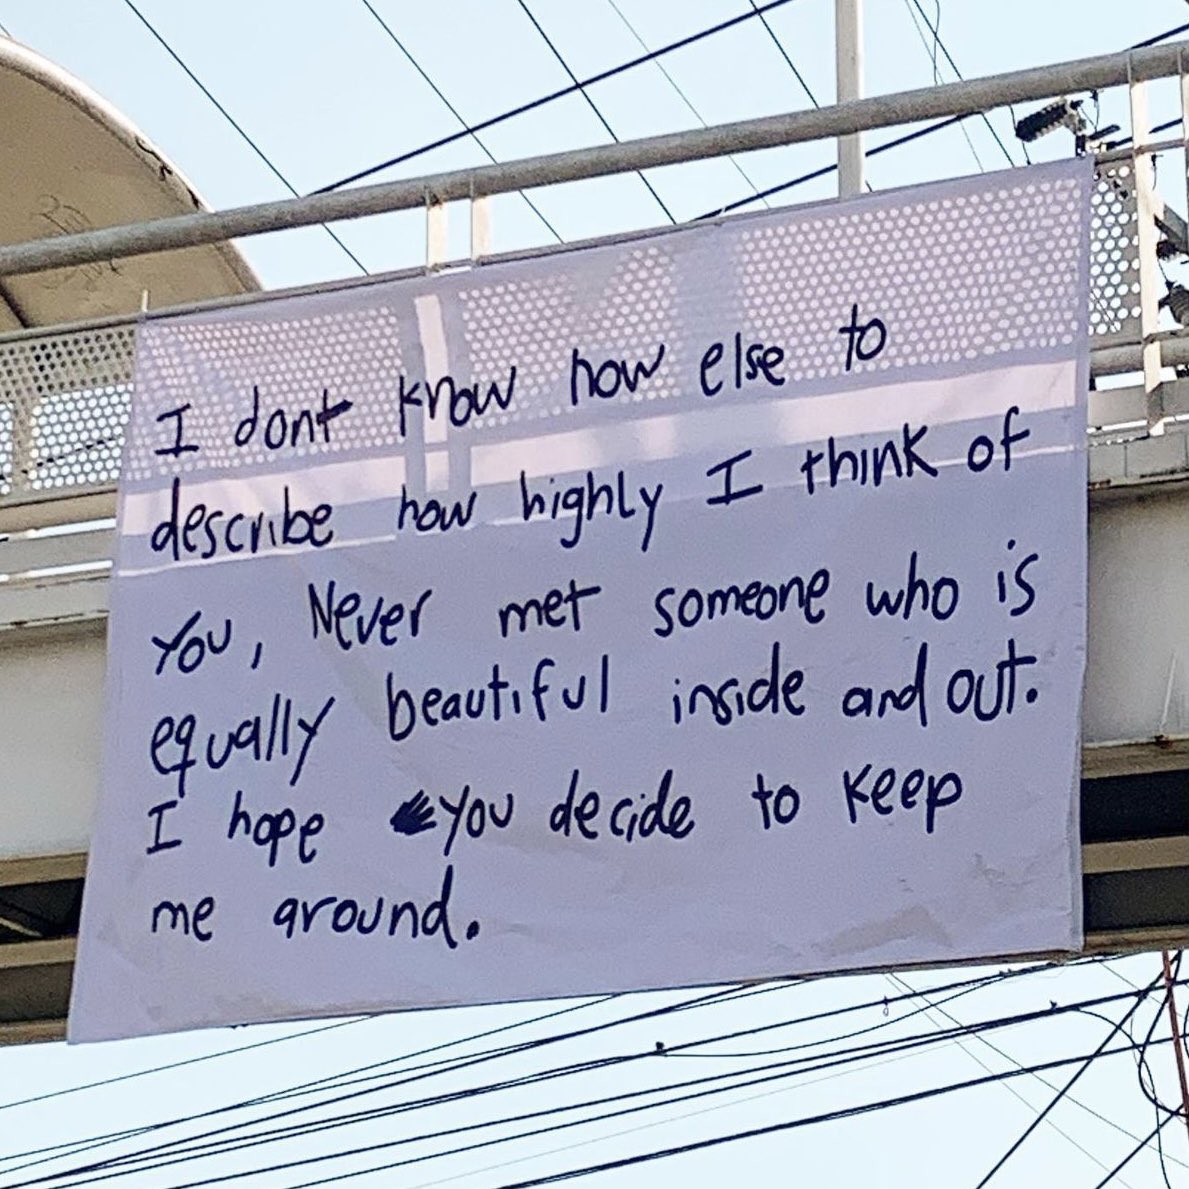 I dont know how else to
describe how highly I think of
You, Never met someone who is
equally beautiful inside and out.
I hope you decide to keep
me around.